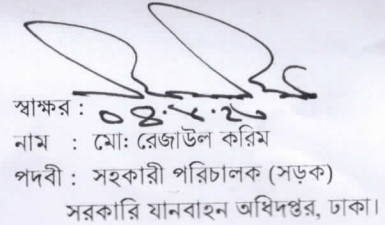 স্বাক্ষর :
নাম : মো: রেজাউল করিম
পদবী : সহকারী পরিচালক (সড়ক)
সরকারি যানবাহন অধিদপ্তর, ঢাকা।